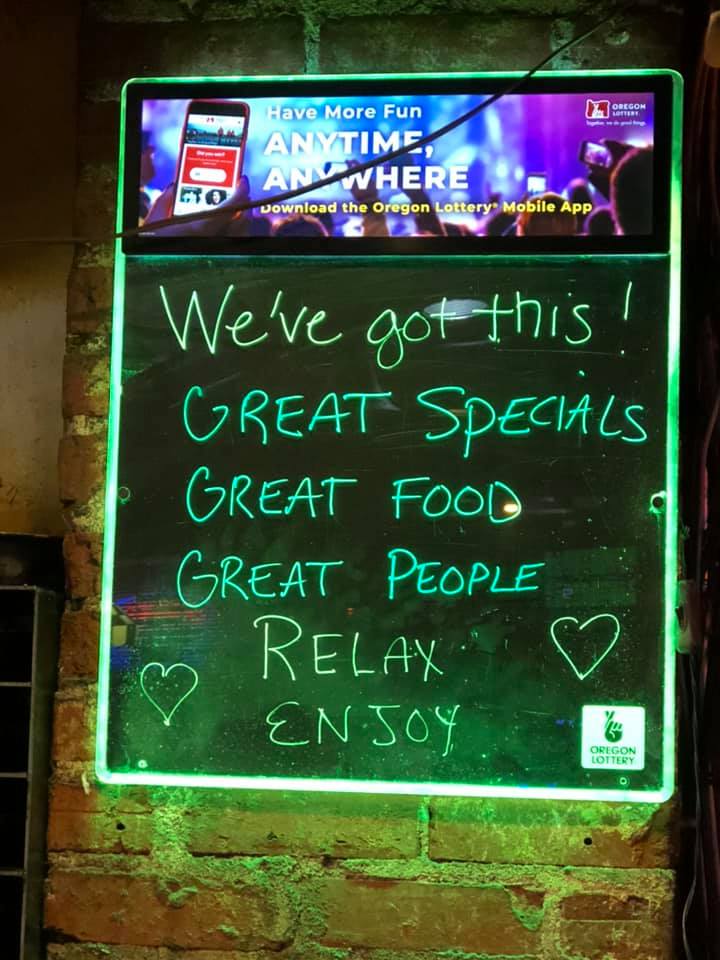 Have More Fun
ANYTIME,
ANYWHERE
Download the Oregon Lottery® Mobile App
OREGON
LOTTERY
Together, we do good things
Did you win?
We've got this!
GREAT SPECIALS
GREAT FOOD
GREAT PEOPLE
RELAX
ENJOY
OREGON
LOTTERY